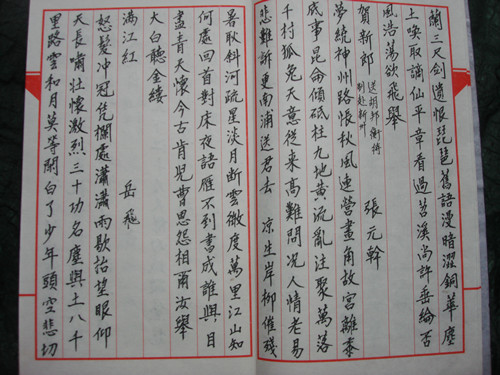 蘭三尺劍遺恨琵琶舊語漫暗澀銅華塵
土喚取謫仙平章看過苕溪尚許垂綸否
風浩蕩欲飛舉
賀新郎 送胡邦衡待制赴新州 張元幹
夢繞神州路悵秋風連營畫角故宮離黍
底事昆侖傾砥柱九地黃流亂注聚萬落
千村狐兔天意從來高難問況人情老易
悲難訴更南浦送君去 涼生岸柳催殘
暑耿斜河疏星淡月斷雲微度萬里江山知
何處回首對床夜語雁不到書成誰與目
盡青天懷今古肯兒曹恩怨相爾汝舉
大白聽金縷
滿江紅 岳飛
怒髮冲冠凭欄處瀟瀟雨歇抬望眼仰
天長嘯壯懷激烈三十功名塵與土八千
里路雲和月莫等閑白了少年頭空悲切